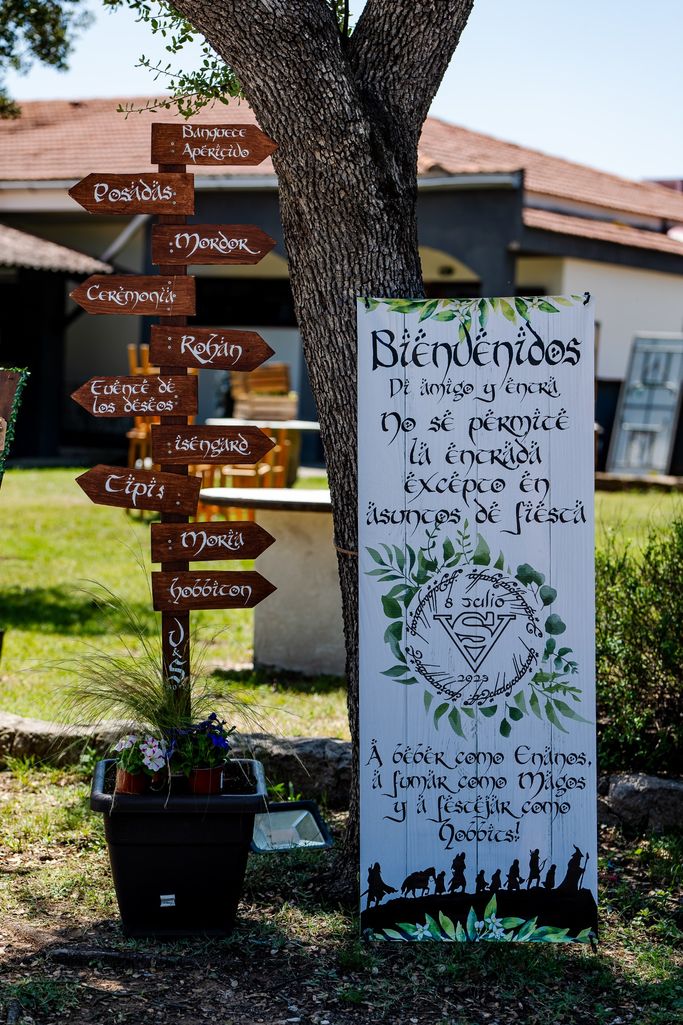 Banquete
Aperitivo
Posadas
Mordor
Ceremonia
Rohan
Fuente de
los deseos
Isengard
Tipis
Moria
Hobbiton
V&S
Bienvenidos
Di amigo y entra
No se permite
la entrada
excepto en
asuntos de fiesta
8 Julio
VS
2023
A beber como Enanos,
a fumar como Magos
y a festejar como
Hobbits!